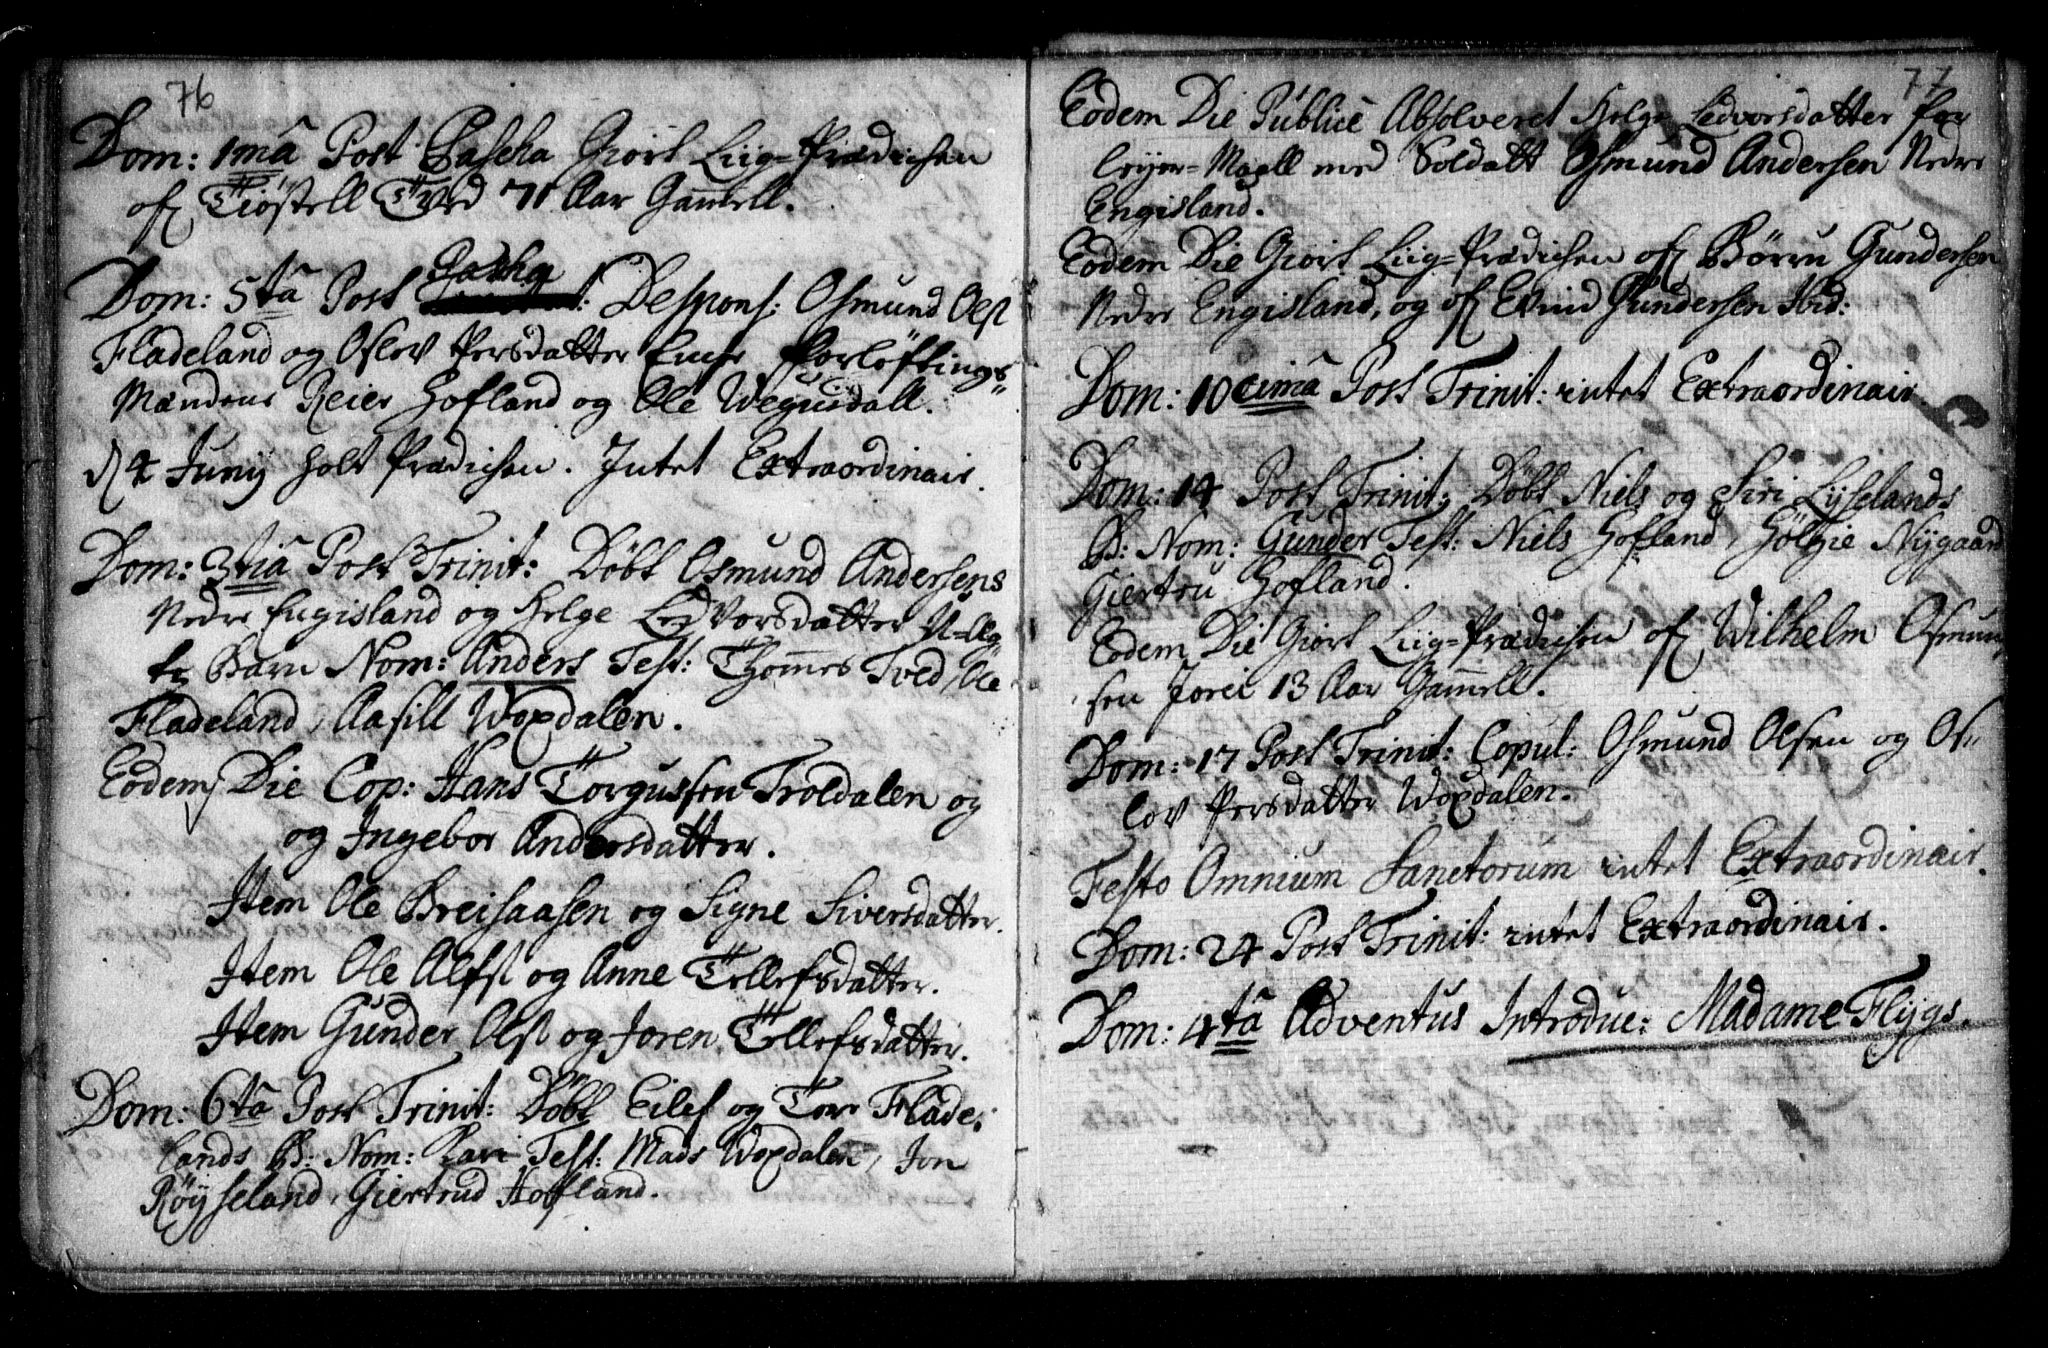 76
Dom: 1mâ Post Pascha Giort Liig=Prædichen
of Tiøstell Tved 71 Aar Gam̄ell.
Pascha
Dom: 5tâ Post Despons: Osmund Ols
Fladeland og Oslev Persdatter Forløftings
Mændene Reier Hofland og Ole Wegusdall.
d 4 Junij holt Prædichen. Intet Extraordinair.
Dom: 3tiâ Post Trinit: Döbt Osmund Andersens
Nedre Engisland og Helge LedVorsdatter U-Æg
te Barn Nom: Anders Test: Thom̄es Tved, Ole
Fladeland, Aasill Woxdalen.
Eodem Die Cop: Hans Torgussen Troldalen og
og Ingebor Andersdatter.
Item Ole Breisaasen og Signe Siversdatter.
Item Ole Alfs og Anne Tellefsdatter.
Item Gunder Ols og Joren Tellefsdatter.
Dom: 6tâ Post Trinit: Döbt Eilef og Tore Flade:
lands B: Nom: Kari Test: Mads Woxdalen, Jon
Röysseland, Giertrud Hofland.
77
Eodem Die Publicè Absolveret Helge Ledvorsdatter for
Leyer=Maall med Soldatt Osmund Andersen Nedre
Engisland.
Eodem Die Giort Liig=Prædichen of Börru Gundersen
Nedre Engisland, og of Evind Gundersen Ibid:
Dom: 10cimâ Post Trinit: intet Extraordinair
Dom: 14 Post Trinit: Döbt Niels og Siri Lysselands
B: Nom: Gunder Test: Niels Hofland, Nygaard
Giertru Hofland.
Eodem Die Giort Liig=Prædichen of Wilhelm Osmun
sen Jorei 13 Aar Gam̄ell.
Dom: 17 Post Trinit: Copul: Osmund Olsen og Os=
lov Persdatter Woxdalen.
Festo Omnium Sanctorum intet Extraordinair.
Dom: 24 Post Trinit: intet Extraordinair.
Dom: 4tâ Adventus Introduc: Madame Flygs.